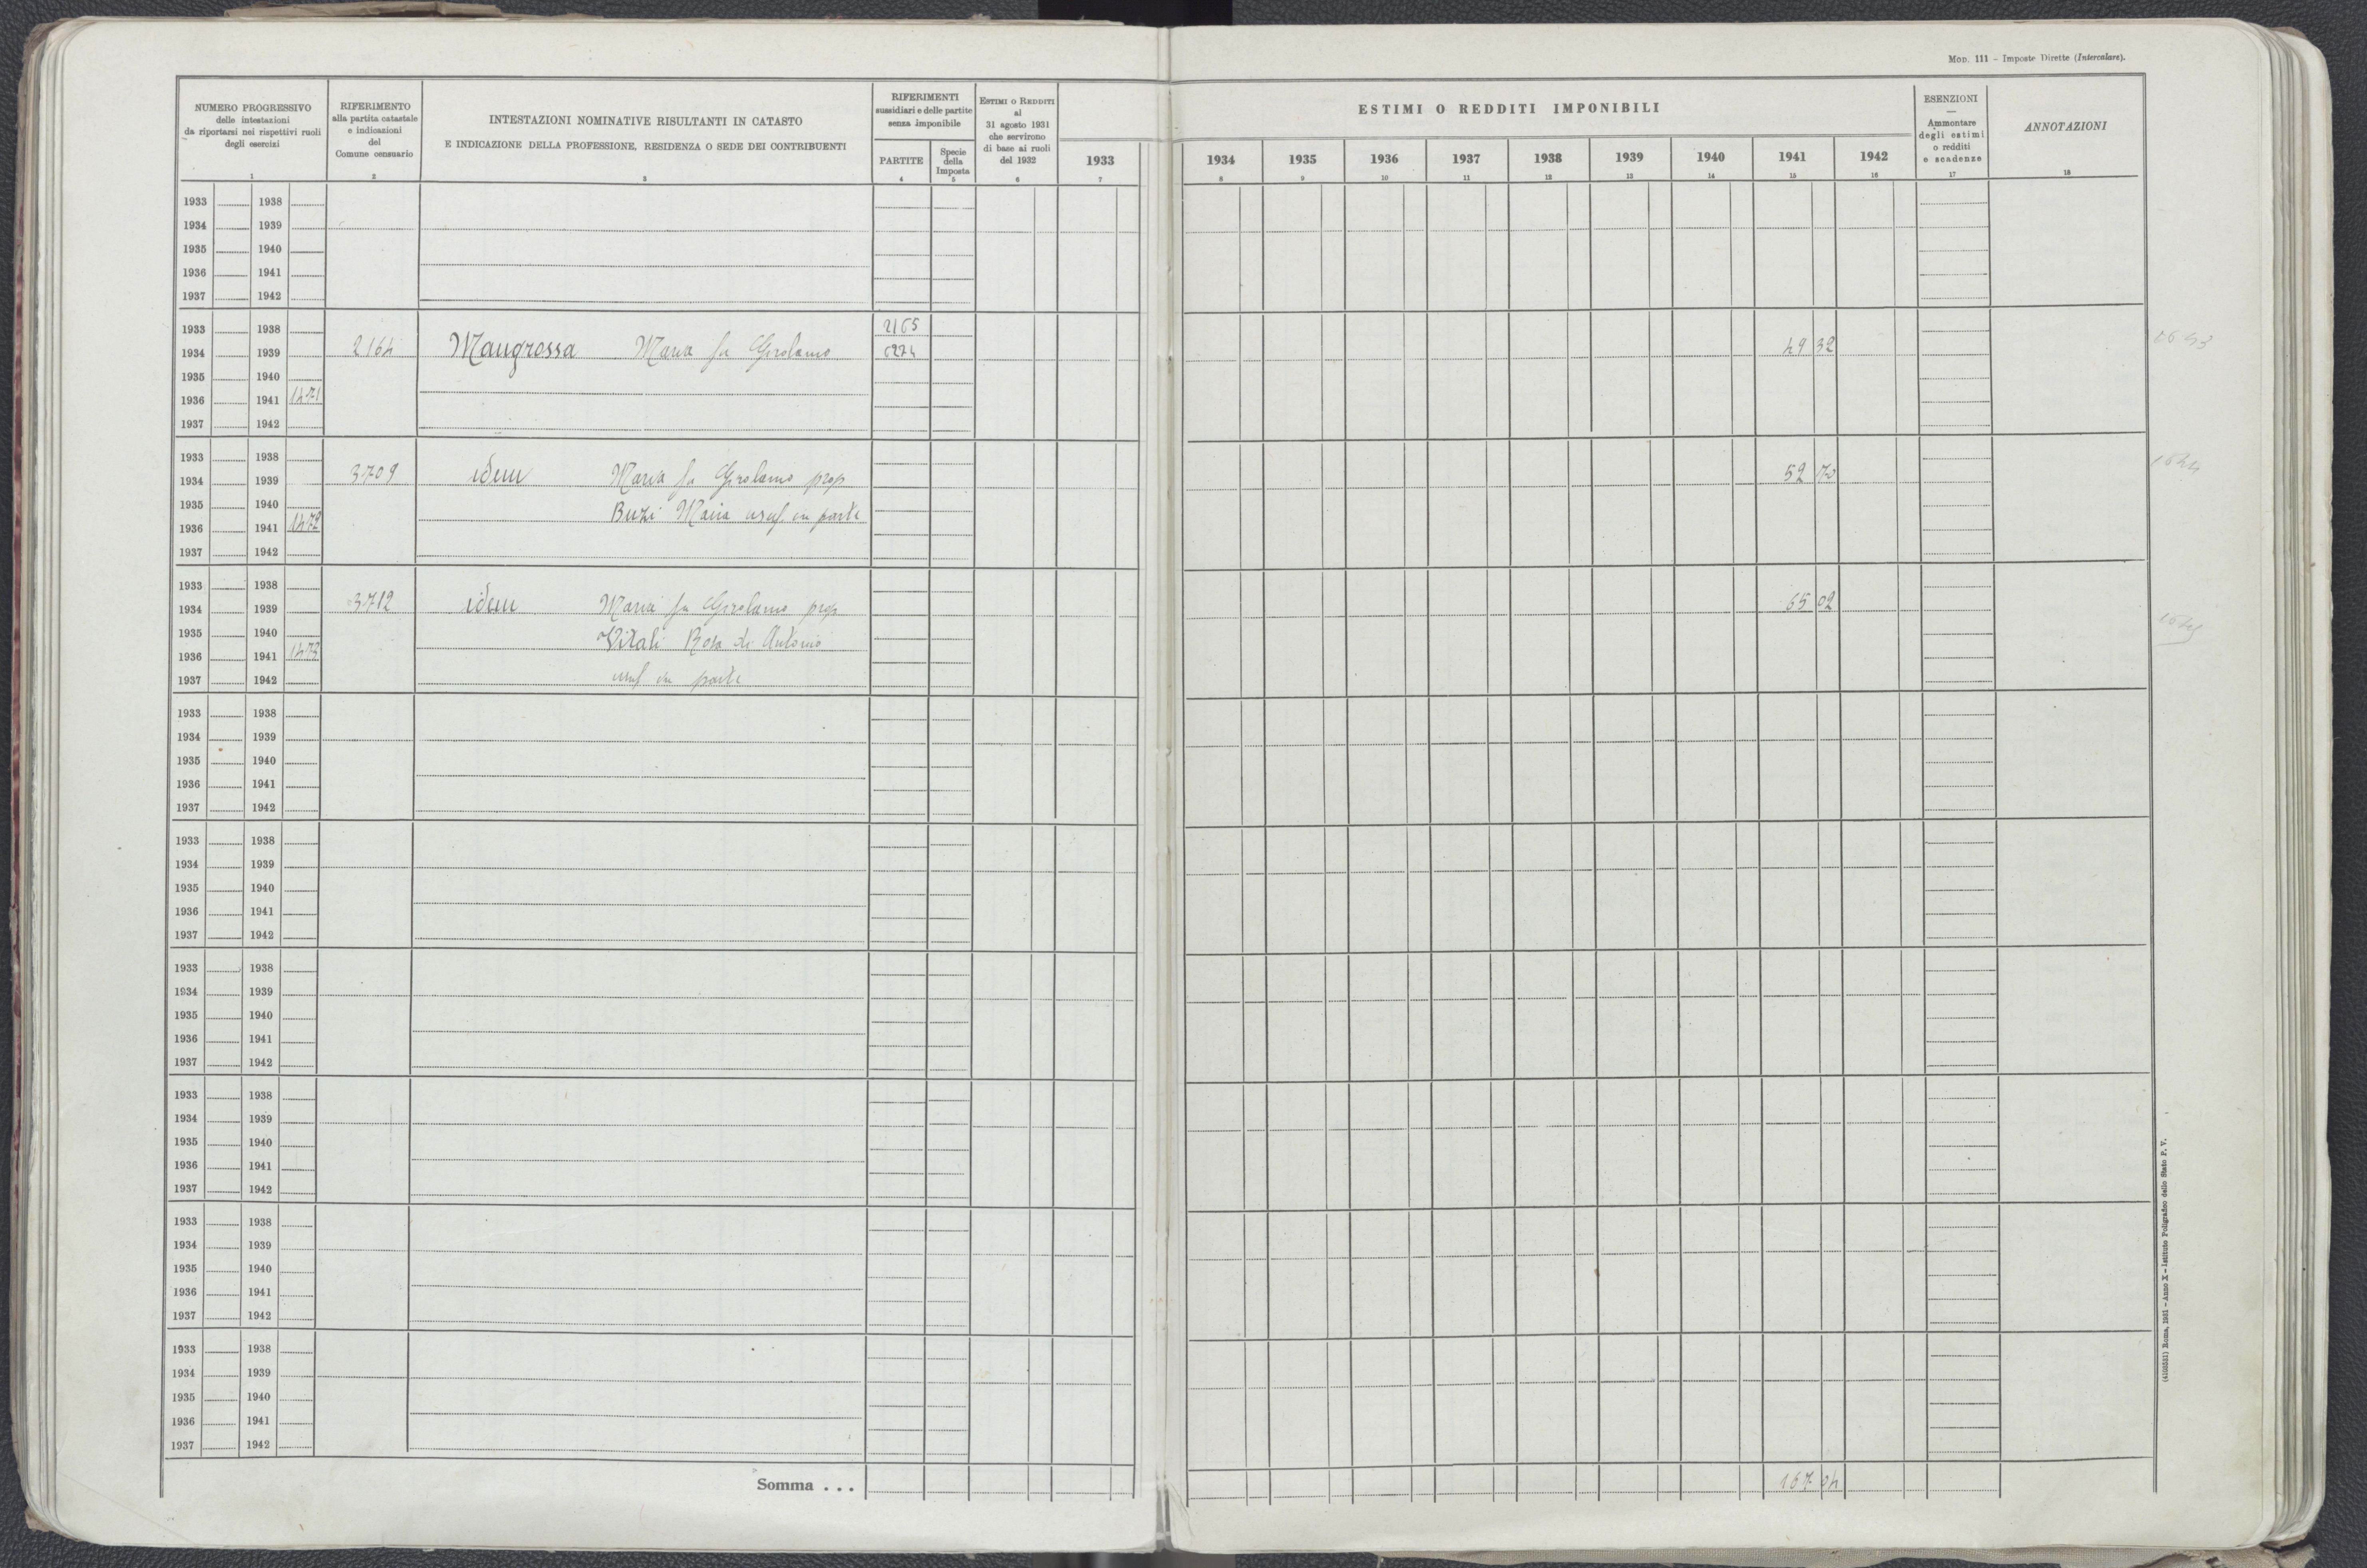 MOD. 111 - Imposte Dirette (Intercalare).
NUMERO PROGRESSIVO
delle intestazioni
da riportarsi nei rispettivi ruoli
degli esercizi
1
RIFERIMENTO
alla partita catastale
e indicazioni
del
Comune censuario
2
INTESTAZIONI NOMINATIVE RISULTANTI IN CATASTO
E INDICAZIONE DELLA PROFESSIONE, RESIDENZA O SEDE DEI CONTRIBUENTI
3
RIFERIMENTI
sussidiari e delle partite
senza imponibile
PARTITE
4
Specie
della
Imposta
5
ESTIMI O REDDITI
al
31 agosto 1931
che servirono
di base ai ruoli
del 1932
6
ESTIMI O REDDITI IMPONIBILI
1933 1934 1935 1936 1937 1938 1939 1940 1941 1942
7 8 9 10 11 12 13 14 15 16
ESENZIONI
—
Ammontare
degli estimi
o redditi
e scadenze
17
ANNOTAZIONI
18
1933 1938
1934 1939
1935 1940
1936 1941
1937 1942
1933 1938 2165
1934 1939 2164 Mangrossa Maria fu Girolamo 49 32
1935 1940
1936 1941 1471
1937 1942
1933 1938
1934 1939 3709 idem Maria fu Girolamo prop 52 70
1935 1940 Buzi Maria usuf. in parte
1936 1941 1472
1937 1942
1933 1938
1934 1939 3712 idem Maria fu Girolamo prop 65 02
1935 1940 Vitali Rosa di Antonio
1936 1941 1473
1937 1942 usuf. in parte
1933 1938
1934 1939
1935 1940
1936 1941
1937 1942
1933 1938
1934 1939
1935 1940
1936 1941
1937 1942
1933 1938
1934 1939
1935 1940
1936 1941
1937 1942
1933 1938
1934 1939
1935 1940
1936 1941
1937 1942
1933 1938
1934 1939
1935 1940
1936 1941
1937 1942
1933 1938
1934 1939
1935 1940
1936 1941
1937 1942
Somma . . . 167 04
(4103531) Roma, 1931 - Anno X - Istituto Poligrafico dello Stato P. V.